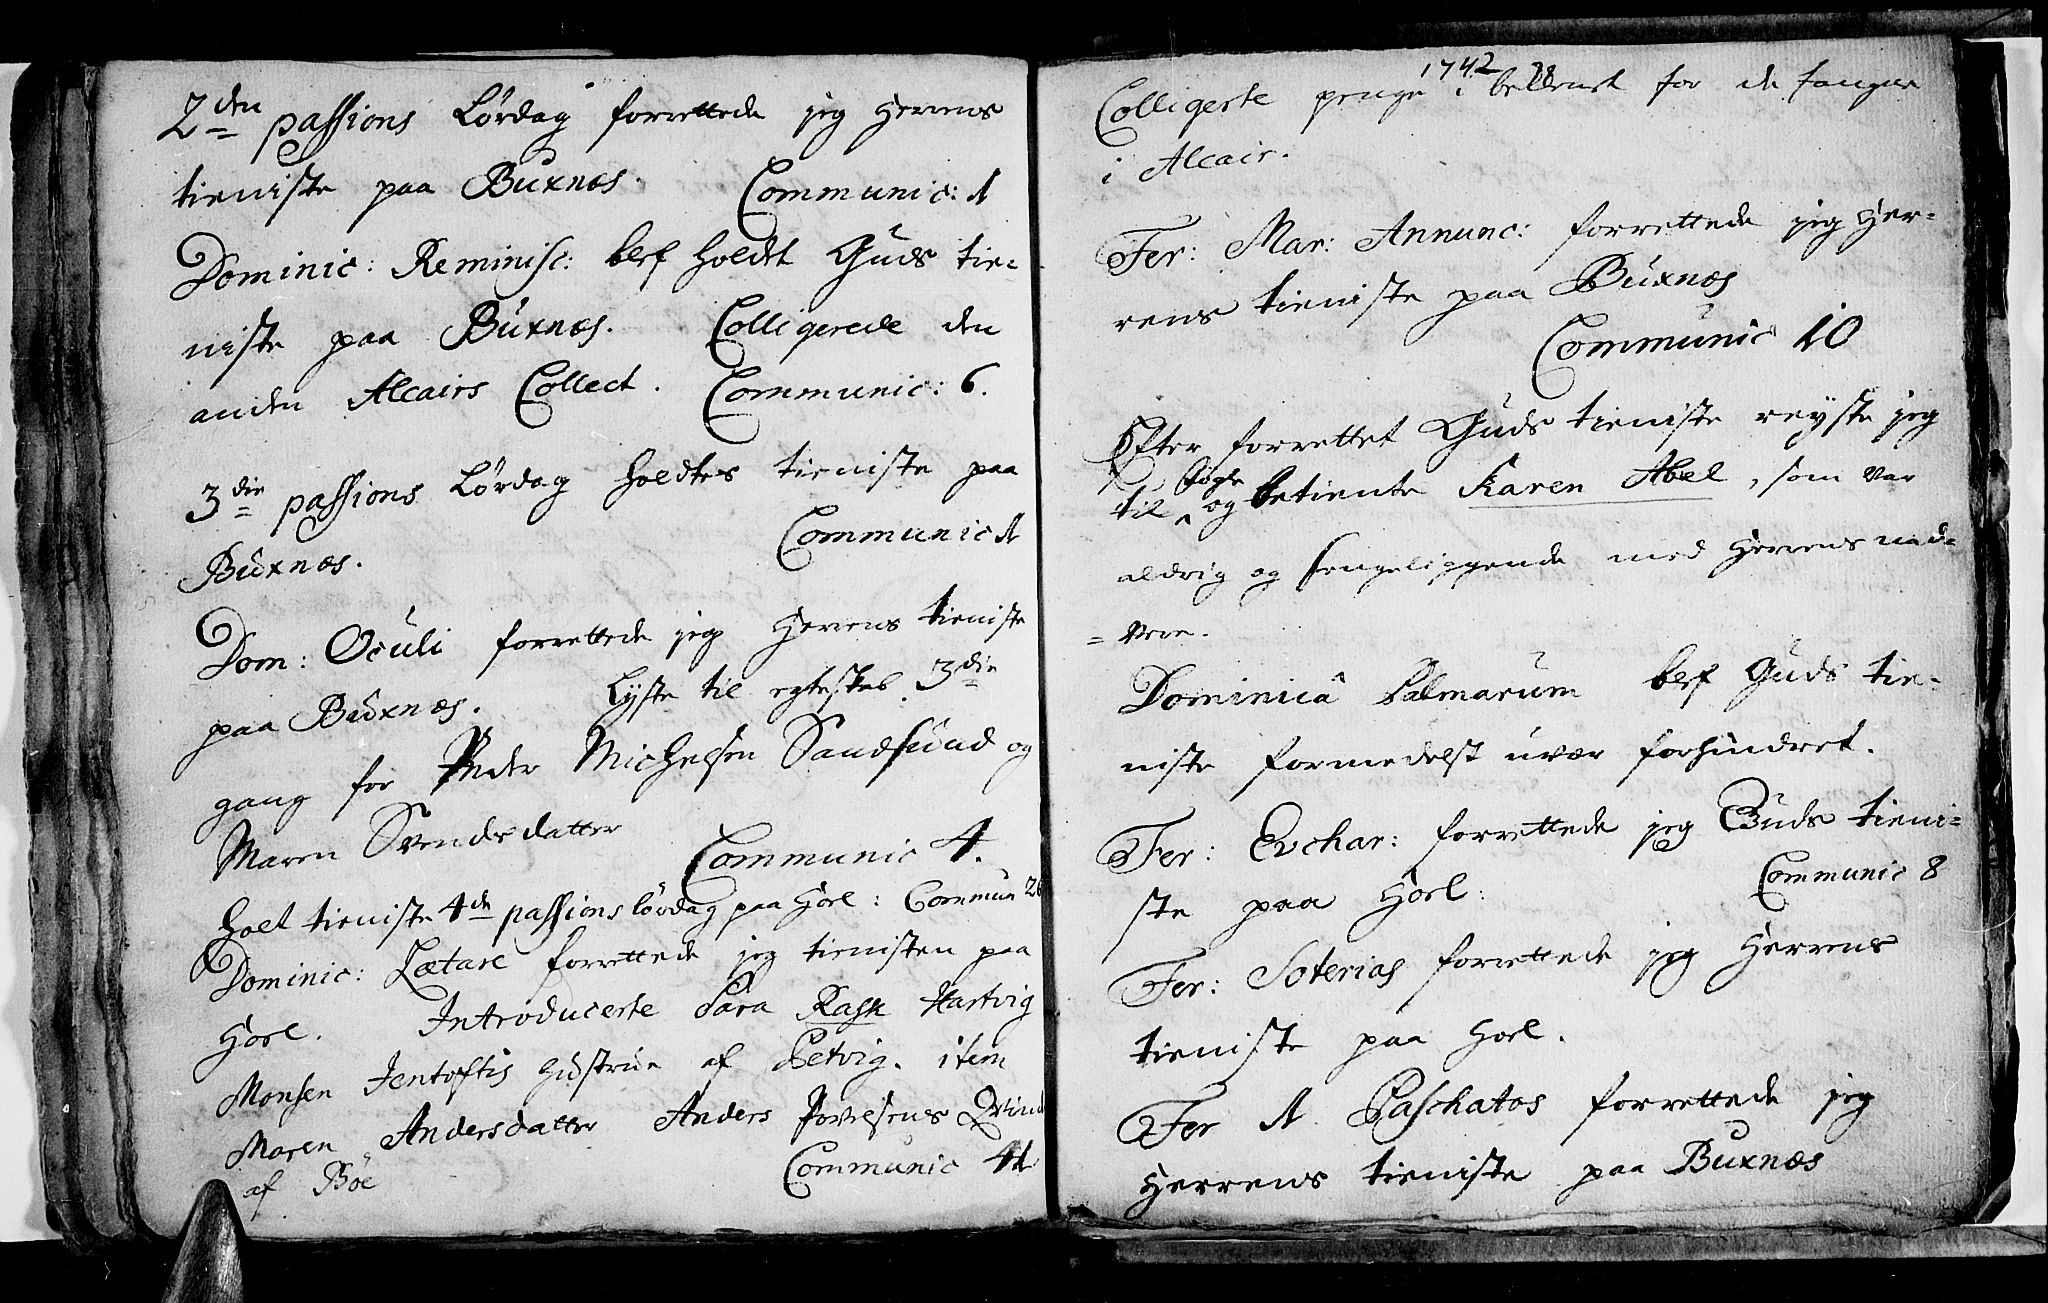 2den passions Lørdag forrettede jeg Herrens
tieniste paa Buxnæs. Communic: 1
Dominic: Reminisc: blef holdt Guds tie-
niste paa Buxnæs. Colligerede den
anden Alcairs Collect. Communic: 6.
3die passions Lørdag holdtes tieniste paa
Buxnæs. Communic 1
Dom: Oculi forrettede jeg Herrens tieniste
paa Buxnæs. Lyste til egteskab 3die
gang for Peder Michelsen Sandsund og
Maren Svendsdatter Communic 4.
holt tieniste 4de passions lørdag paa Hörl: Commun 26
Dominic: Lætare forrettede jeg tienisten paa
Hörl. Introducerte Sara Rask Hartvig
Monsen Jentoftis hustrue af Petvig. item
Maren Andersdatter Anders Povelsens Qvinde
af Böe Communic 41
1742
Colligerte penge i for de fangne
i Alcair.
Fer: Mar: Annunc: forrettede jeg Her-
rens tieniste paa Buxnæs
Communic 10
Efter forrettet Guds tieniste reyste jeg
til og betiente Karen Abel, som var
aldrig og sengeliggende med Herrens nad-
= vere.
Dominicâ Palmarum blef Guds tie-
niste formedelst uvær forhindret.
Fer: Evchar: forrettede jeg Guds tieni-
ste paa Hörl: Communic 8
Fer: Soterias forrettede jeg Herrens
tieniste paa Hörl.
Fer 1 Paschatos forrettede jeg
Herrens tieniste paa Buxnæs